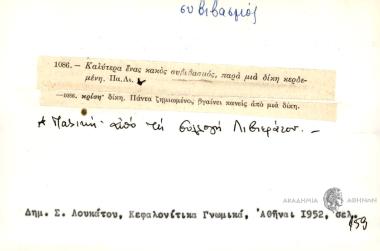 συβιβασμός
1086. – Καλύτερα ἕνας κακὸς συβιβασμός, παρὰ μιὰ δίκη κερδε-
μένη. Πα.Λι.
—1086. κρίση· δίκη. Πάντα ζημιωμένος, βγαίνει κανεὶς ἀπὸ μιὰ δίκη.
Παλική· ἀπὸ τὴ συλλογὴ Λιβιεράτου. –
ΑΚΑΔΗΜΙΑ ΑΘΗΝΩΝ
Δημ. Σ. Λουκάτου, Κεφαλονίτικα Γνωμικά, Ἀθῆναι 1952, σελ. 159